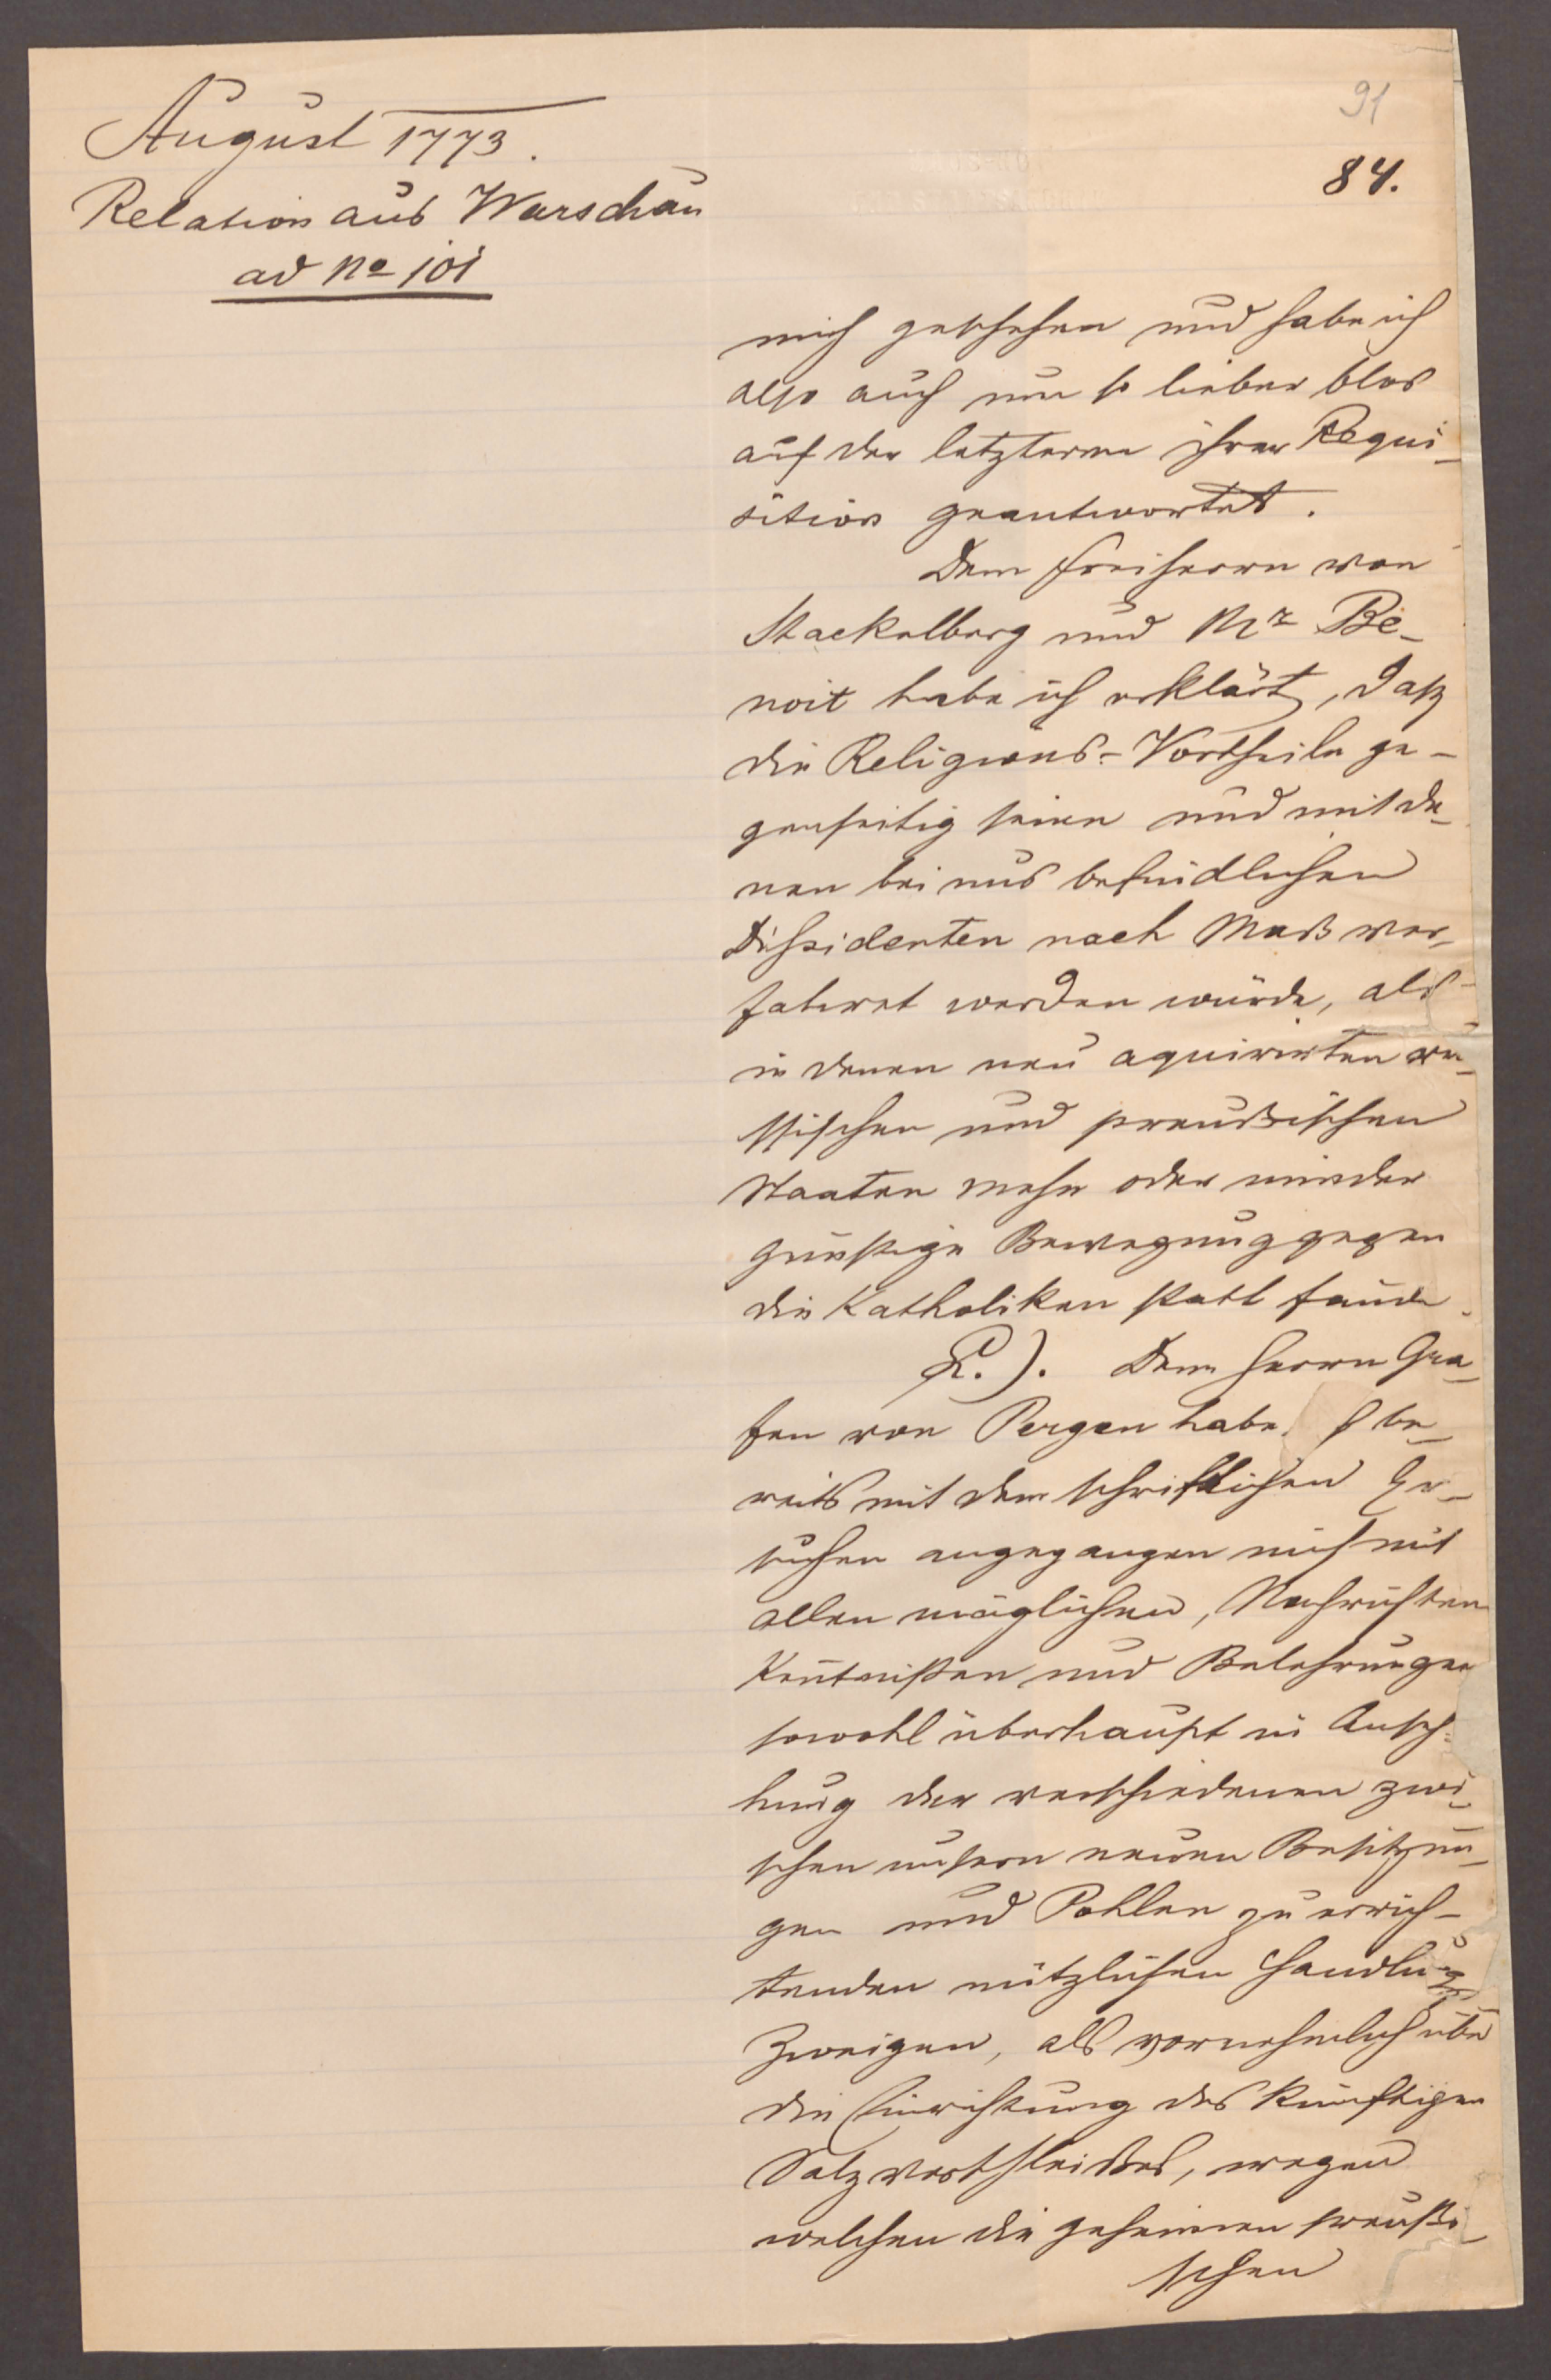 91
84.
August 1773.
Relation aus Warschau
ad No 101
mich geschehen und habe ich
also auch um so lieber blos
auf der letzteren ihrer Requi-
sition geantwortet.
Dem Freiherrn von
Stackelberg und Mr Be-
noit habe ich erklärt, daß
die Religions-Vortheile ge-
genseitig seien und mit de-
nen bei uns befindlichen
Dissidenten nach Maß ver-
fahret werden würde, als
in denen neu aquirirten ru-
ssischen und preußischen
Staaten mehr oder minder
günstige Bewegung gegen
die Katholiken statt fände.
L.). Dem Herrn Gra-
fen von Pergen habe ich be-
reits mit dem schriftlichen Er-
suchen angegangen mich mit
allen möglichen, Nachrichten
Kentnißen und Belehrungen
sowohl überhaupt in Anse-
hung der verschiedenen zwi-
schen unsern neuen Besitzun-
gen und Pohlen zu errich-
tenden nützlichen Handlungs
Zweigen, als vornehmlich über
die Einrichtung des künftigen
Salzverschleißes, wegen
welchen die geheimen preußi-
schen